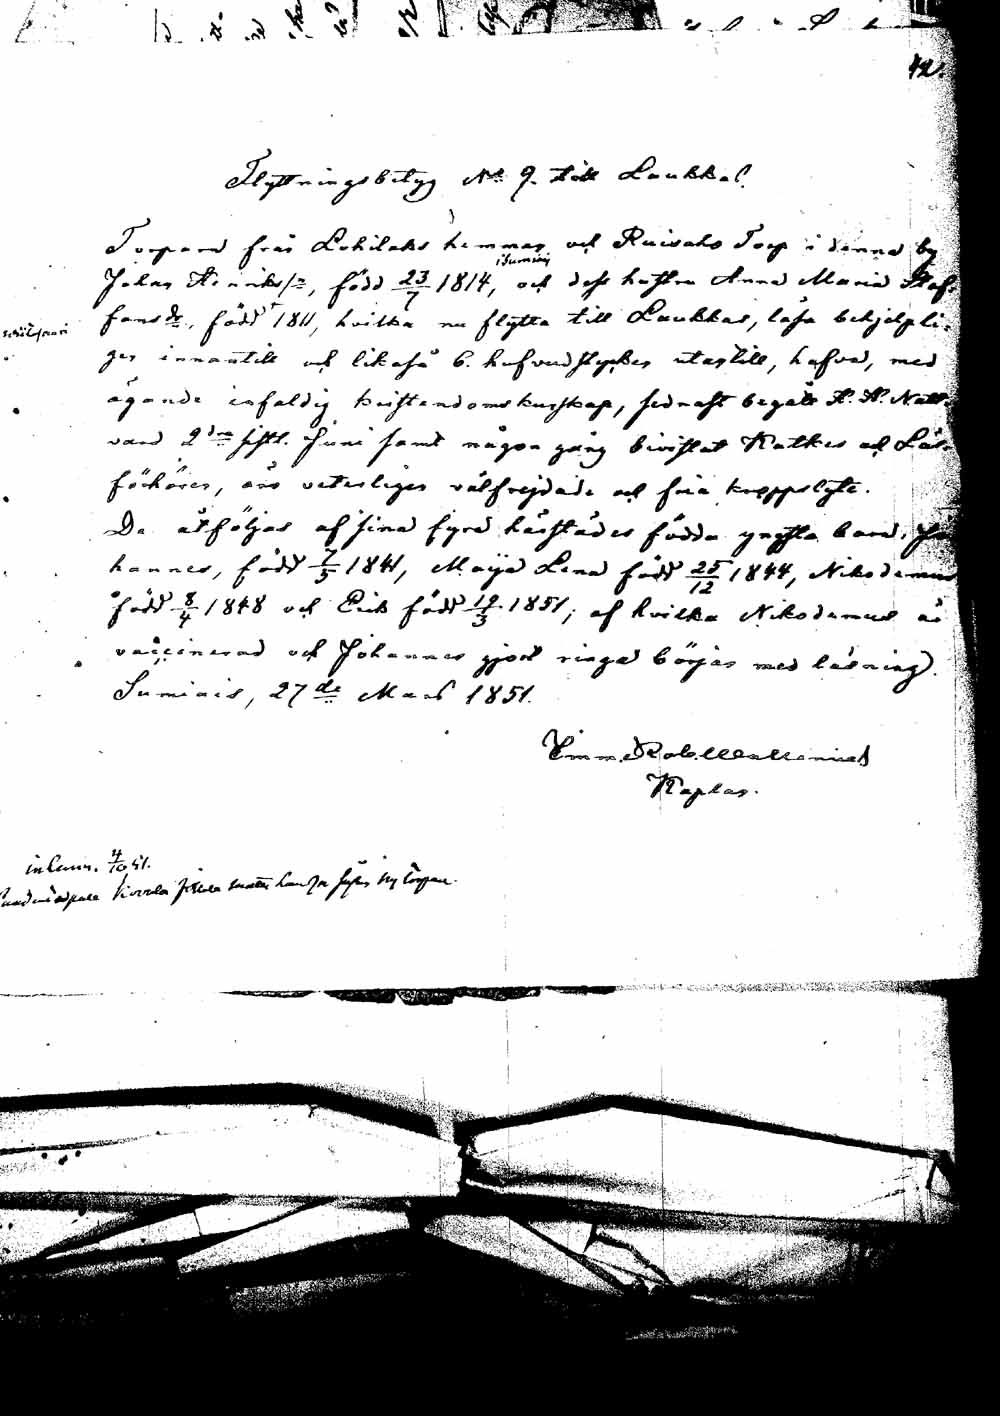 42.
Flyttningsbetyg No 9. till Laukkas.
Torparen från Lokilaks hemman och Ruisaho Torp i denna by
i Sumiais
Johan Henrikss:n, född 23/7 1814, och dess hustru Anna Maria Staf-
fansdr, född 1811, hvilka nu flytta till Laukkas, läsa behjelpli-
gen innantill och likaså 6. hufvudstycken utantill, hafva, med
ägande enfaldig kristendomskunskap, sednast begått H. H. Natt-
vard 2dra sistl. Juni samt någon gång bivistat Katkes och Läs-
förhören, äro veterligen välfrejdade och fria kroppslyte.
De åtföljas af sina fyra härstädes födda yngsta barn, Jo-
hannes, född 7/5 1841, Maija Lena född 25/12 1844, Nikodemus
född 8/4 1848 och Erik född 19/3 1851; af hvilka Nikodemus är
vaccinerad och Johannes gjort ringa början med läsning.
Sumiais, 27de Mars 1851.
Kaplan.
inlemn. 4/10 51.